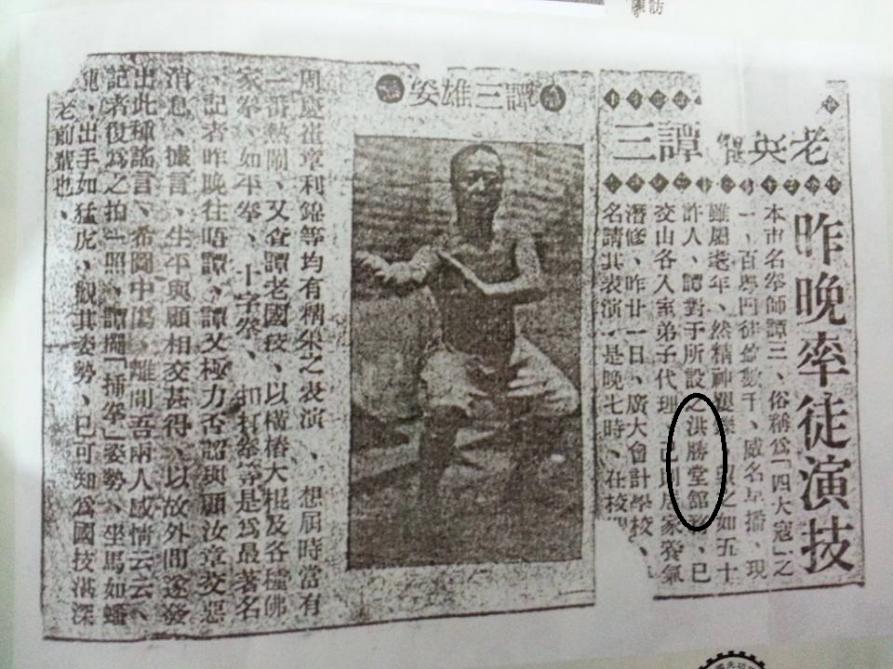 老英雄譚三
昨晚率徒演技
本市名拳師譚三、俗稱為「四大寇」之
一、百粵門徒數千、威名早播、現
雖屬老年、然精神矍、望之如五十
許人、譚對于所設之洪勝堂館務、已
交由各入室弟子代理、己則居家養氣
潛修、昨廿一日、廣大會計學校、
名請其表演、是晚七時、在校
譚三雄姿
周慶崔章利錦等均有精采之表演、想屆時當有
一番熱鬧、又查譚老國技、以橫樁大棍及各種佛
家拳、如平拳、十字拳、扣打拳等是為最著名
、記者昨晚往晤譚、譚又極力否認與顧汝章交惡
消息、據言、生平與顧相交甚得、以故外間遂發
出此種謠言、希圖中傷、離間吾兩人感情云云、
記者復為之拍一照、譚擺「插拳」姿勢、坐馬如蟠
龍、出手如猛虎、觀其姿勢、已可知為國技湛深
老前輩也、